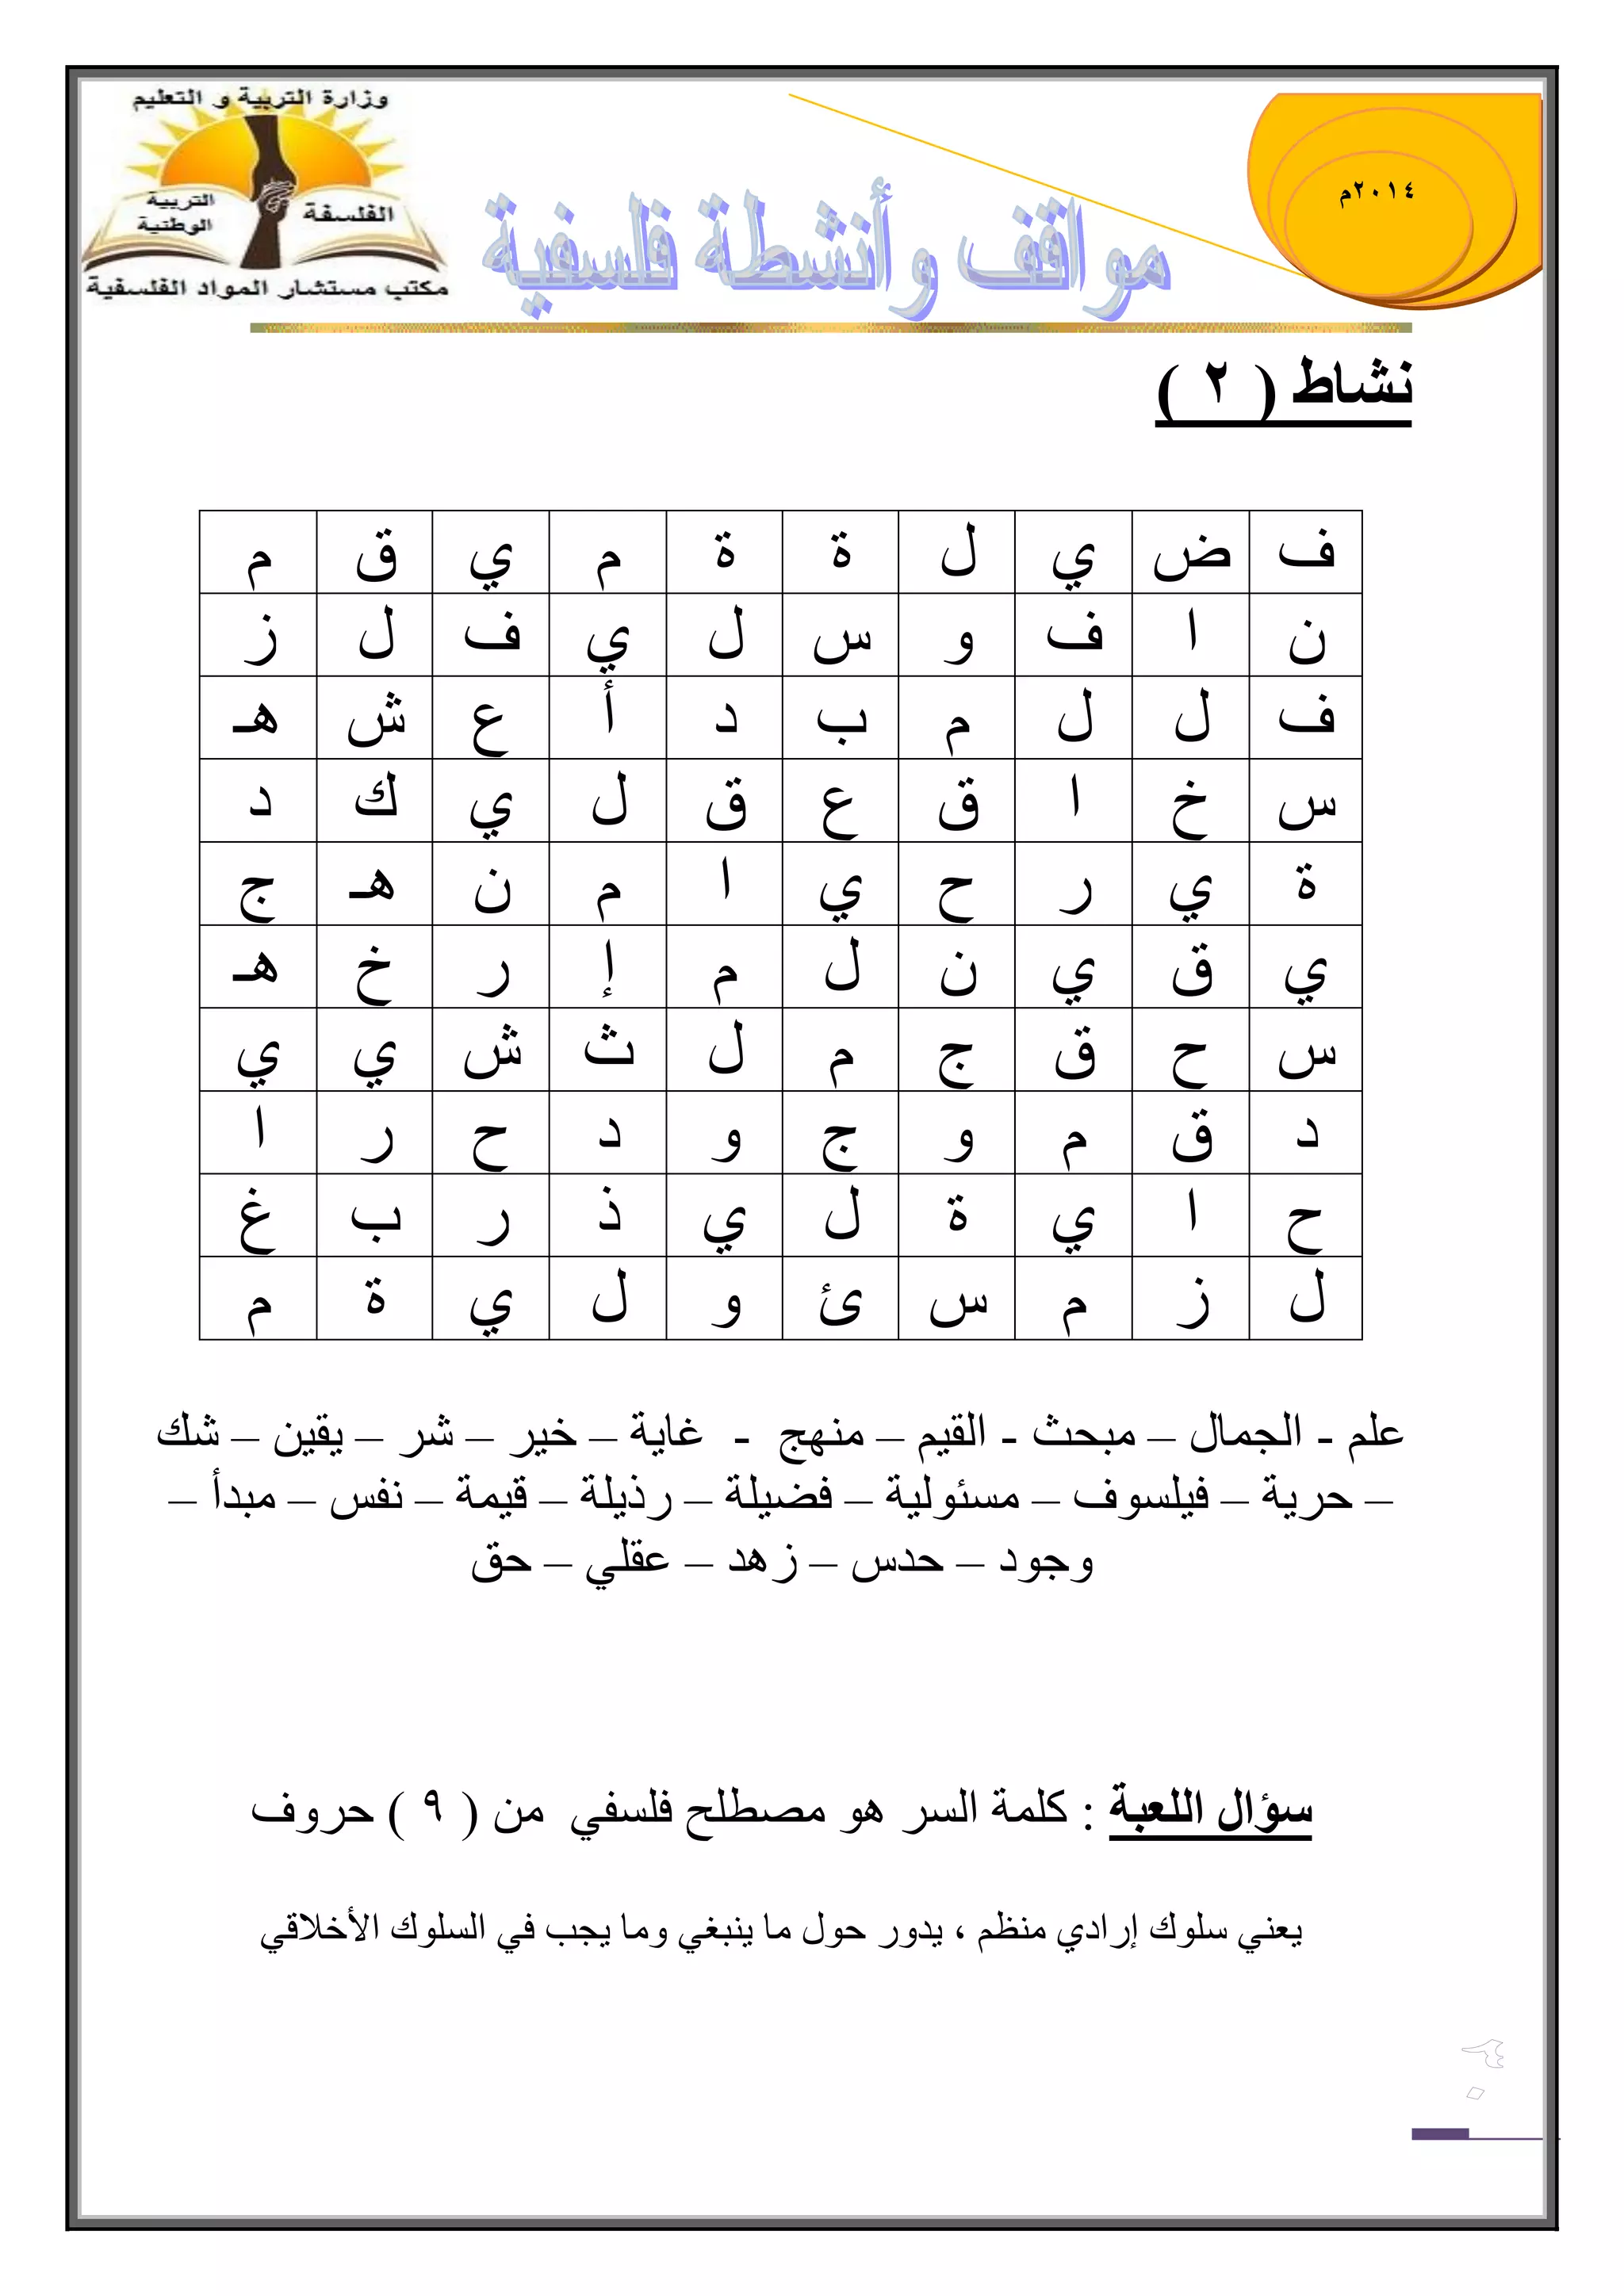 وزارة التربية و التعليم
التربية الوطنية
الفلسفة
مكتب مستشار المواد الفلسفية
مواقف وأنشطة فلسفية
٢٠١٤م
نشاط ( ٢ )
ف ض ي ل ة ة م ي ق م
ن ا ف و س ل ي ف ل ز
ف ل ل م ب د أ ع ش هـ
س خ ا ق ع ق ل ي ك د
ة ي ر ح ي ا م ن هـ ج
ي ق ي ن ل م إ ر خ هـ
س ح ق ج م ل ث ش ي ي
د ق م و ج و د ح ر ا
ح ا ي ة ل ي ذ ر ب غ
ل ز م س ئ و ل ي ة م
علم - الجمال – مبحث - القيم – منهج - غاية – خير – شر – يقين – شك
– حرية – فيلسوف – مسئولية – فضيلة – رذيلة – قيمة – نفس – مبدأ –
وجود – حدس – زهد – عقلي – حق
سؤال اللعبة : كلمة السر هو مصطلح فلسفي من ( ٩ ) حروف
يعني سلوك إرادي منظم ، يدور حول ما ينبغي وما يجب في السلوك الأخلاقي